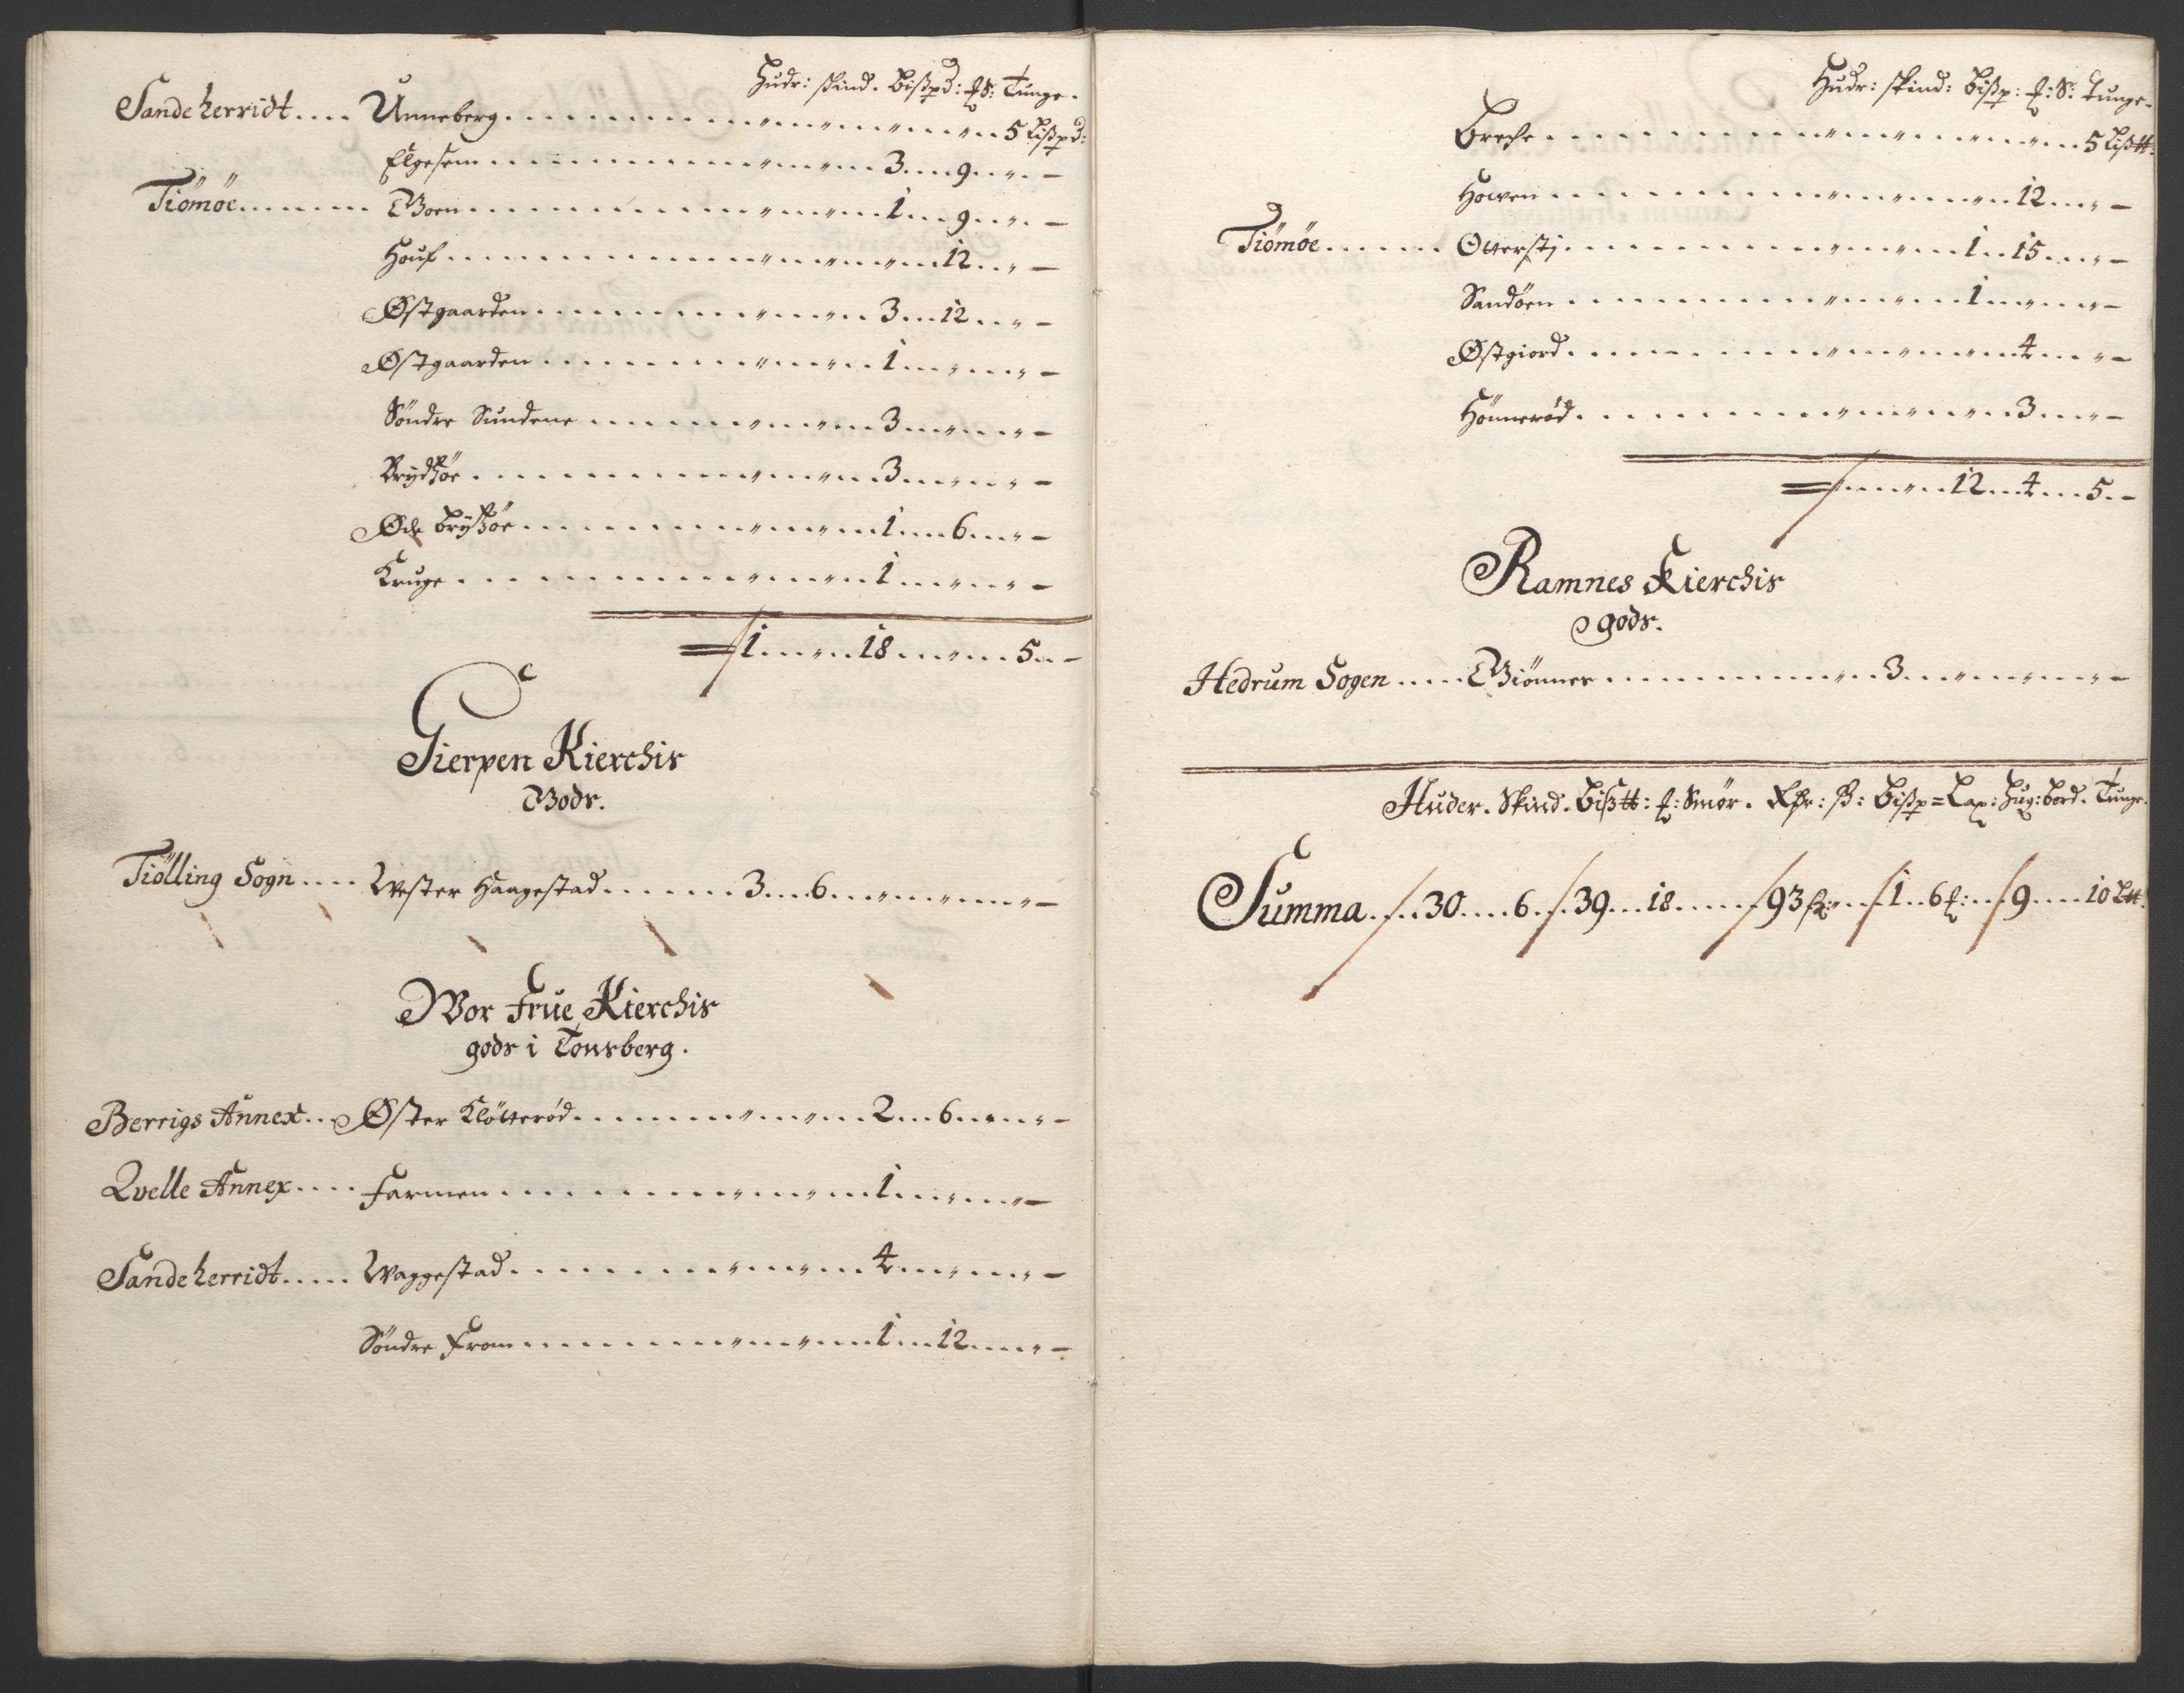 Hudr: skind. Bißpd: ℔ S: Tunge.
Sandeherridt.... Unneberg........... 5 Lißpd:
Elgesem........... 3... 9... –
Tiömöe....... Moen........... 1... 9... –
Houf........... 12... –
Østgaarden........... 3... 12... –
Østgaarden........... 1... –
Söndre Sundene........... 3... –
Brydtzøe........... 3... –
Øde Brytzøe........... 1... 6... –
Kruge........... 1... –
1...... 18...... 5.. –
Gierpen Kierchis
Godz.
Tiölling Sogn.... Wester Haagestad....... 3... 6...... –
Wor Frue Kierchis
godz i Tonsberg.
Berrigs Annex... Øster Klötterød........... 2... 6... –
Qvelle Annex.... Farmen........... 1... –
Sandeherridt..... Waggestad........... 4... –
Söndre From........... 1... 12... –
Hudr: skind: Bißp: ℔: S: Tunge.
Breche........... 5 Liß℔:
Howen........... 12... –
Tiömöe...... Otterstj........... 1.. 15... –
Sandöen........... 1... –
Østgiord........... 4... –
Hönnerød........... 3... –
...... 12... 4... 5.. –
Ramnes Kierchis
godz.
Hedrum Sogen..... Biönnes........... 3...... –
Huder. Skind. Biß℔: ℔: Smör. ß: Bißp= Lax: Hug: bord. Tunge.
Summa.... 30.... 6... 39... 18..... 93... 1.. 6... 9.... 10 L℔.